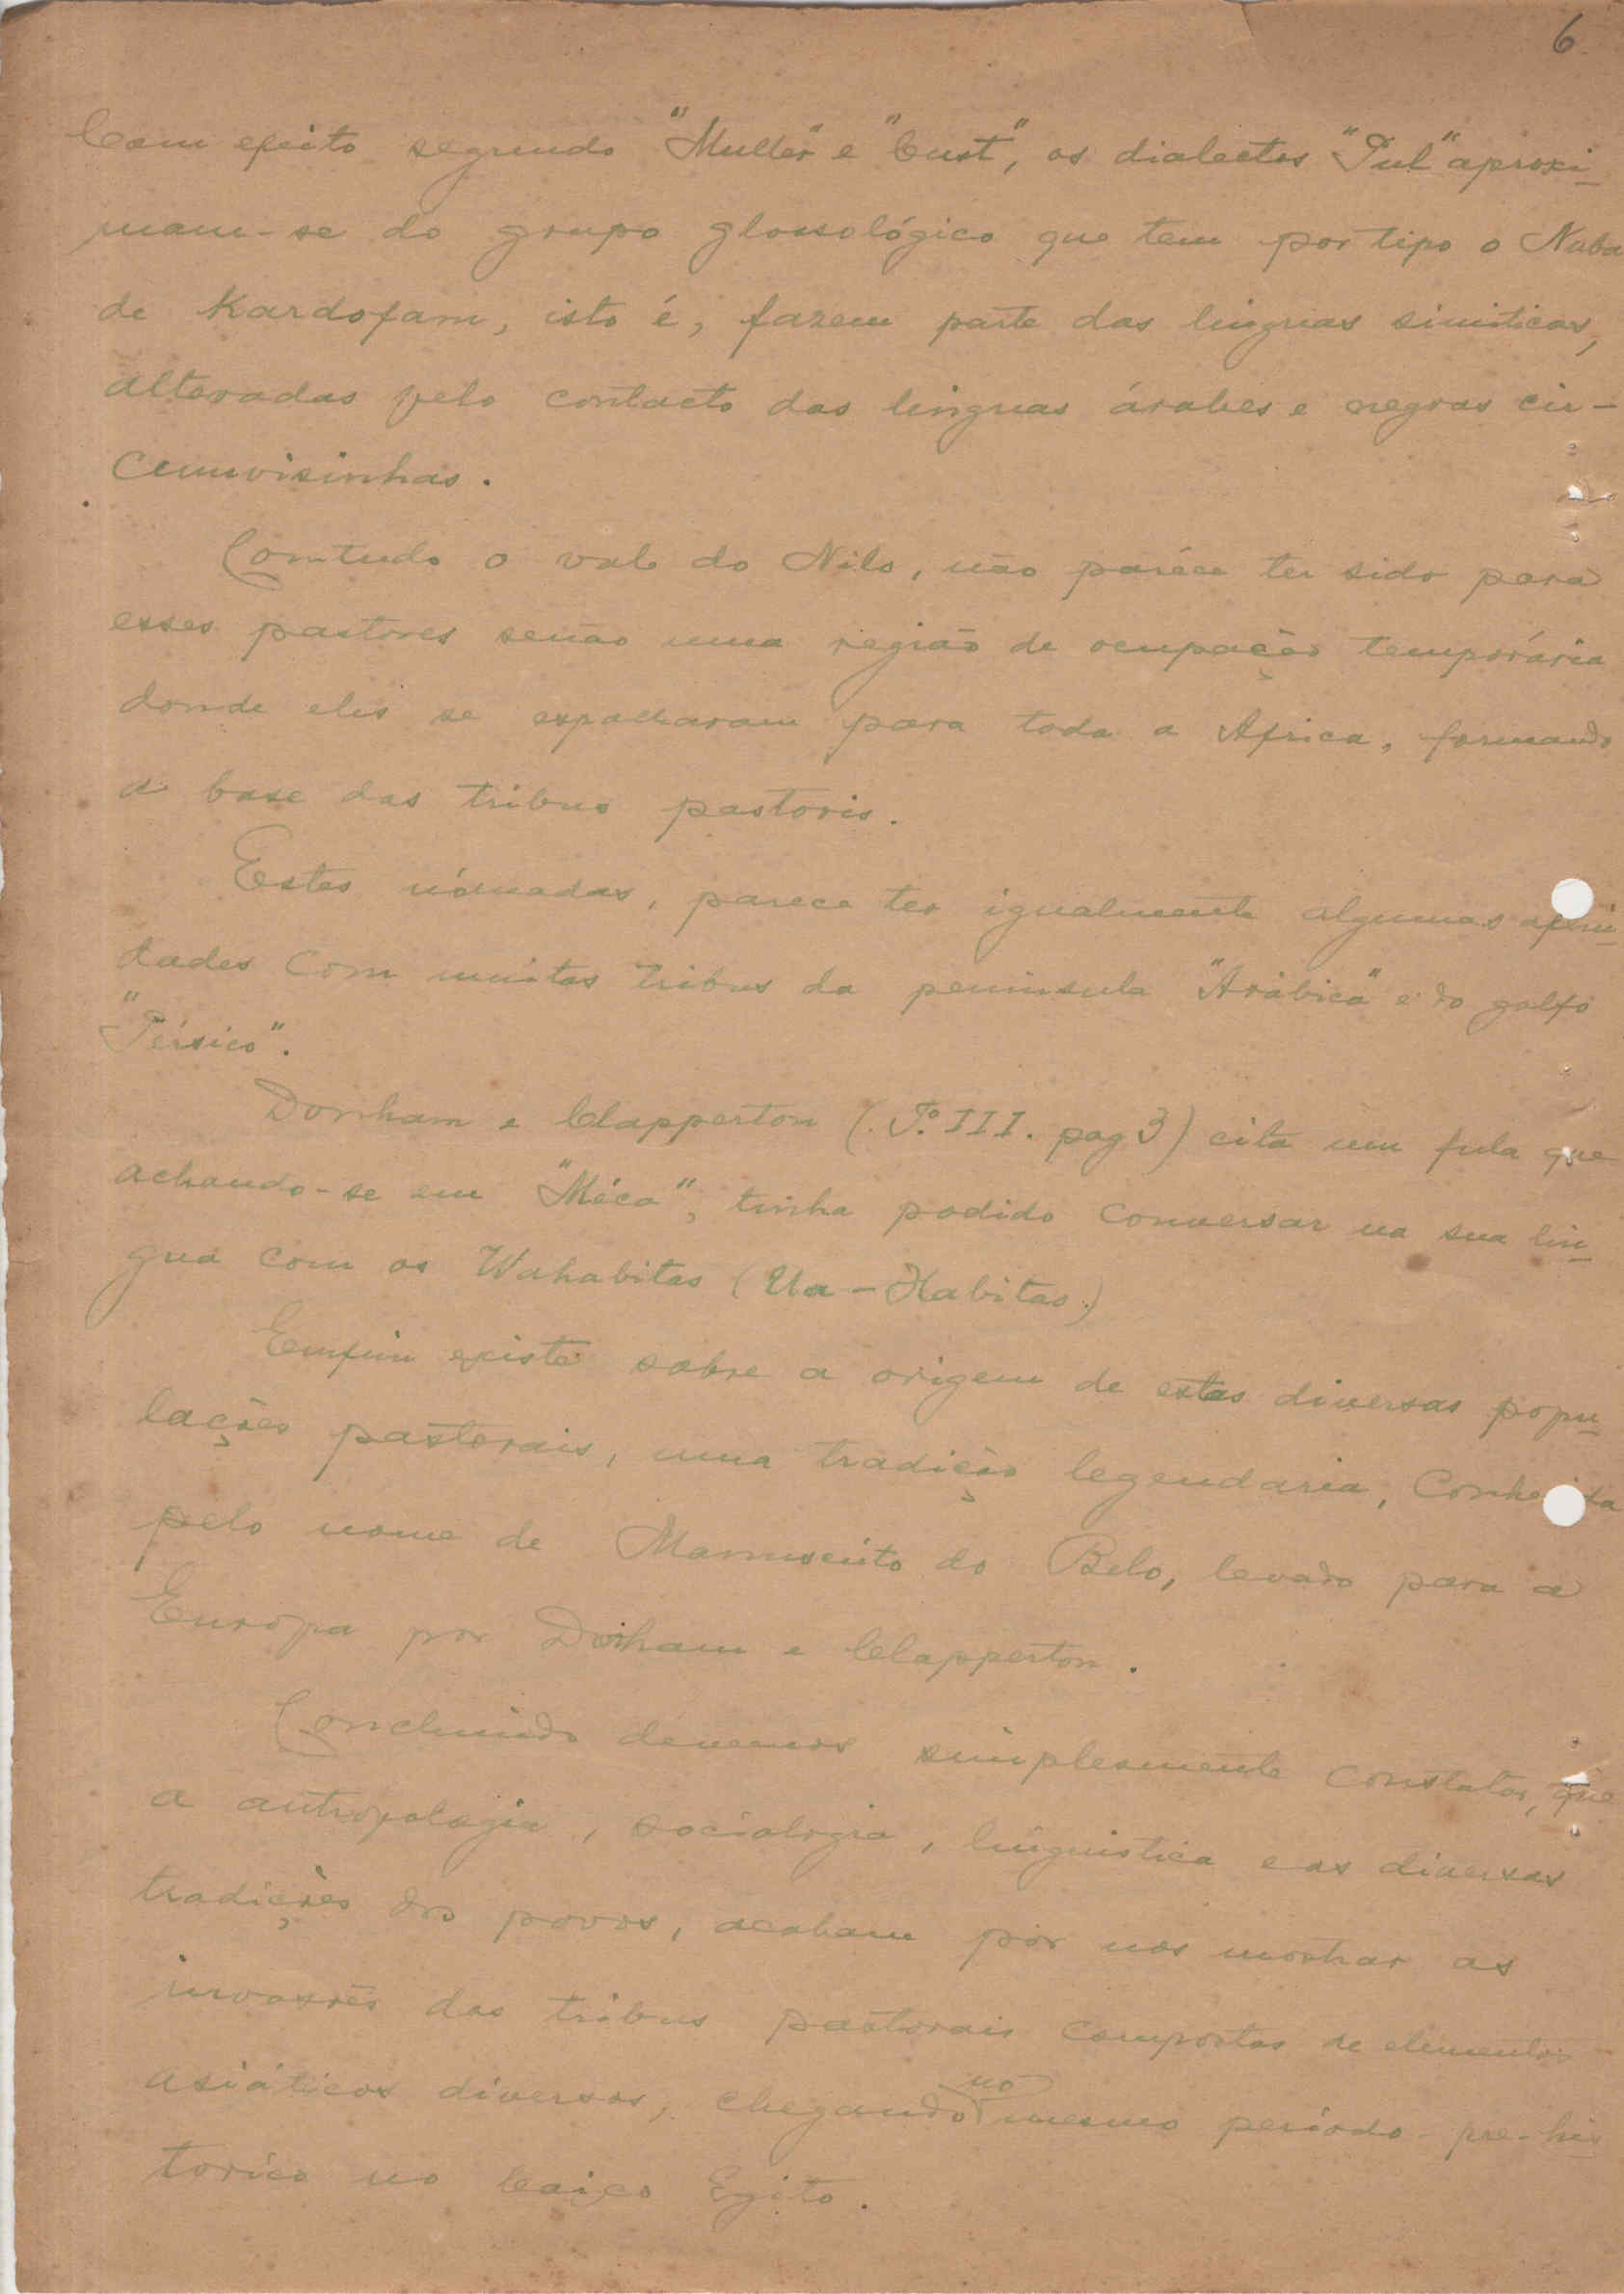 6
Com efeito segundo "Muller" e "Cust", os dialectos "Pul" aproxi-
mam-se do grupo glossológico que tem por tipo o Nuba
de Kardofam, isto é, fazem parte das linguas simiticas,
alteradas pelo contacto das linguas árabes e negras cir-
cumvisinhas.
Comtudo o vale do Nilo, não paréce ter sido para
esses pastores senão uma região de ocupação temporária
donde eles se espalharam para toda a Africa, formando
a base das tribus pastoris.
Estes nómadas, parece ter igualmente algumas afini-
dades com muitas tribus da peninsula "Arábica" e do golfo
"Pérsico".
Donham e Clapperton (T.º III. pag 3) cita um fula que
achando-se em "Méca", tinha podido conversar na sua lin-
gua com os Wahabitas (Ua-Habitas.)
Emfim existe sobre a origem de estas diversas popu-
lações pastorais, uma tradição legendaria, conhecida
pelo nome de Manuscrito do Belo, levado para a
Europa por Donham e Clapperton.
Concluindo devemos simplesmente constatar, que
a antropologia, sociologia, linguistica e as diversas
tradições dos povos, acabam por nos mostrar as
invasões das tribus pastorais compostas de elementos
asiáticos diversos, chegando no mesmo periodo pre-his
torico no baixo Egito.